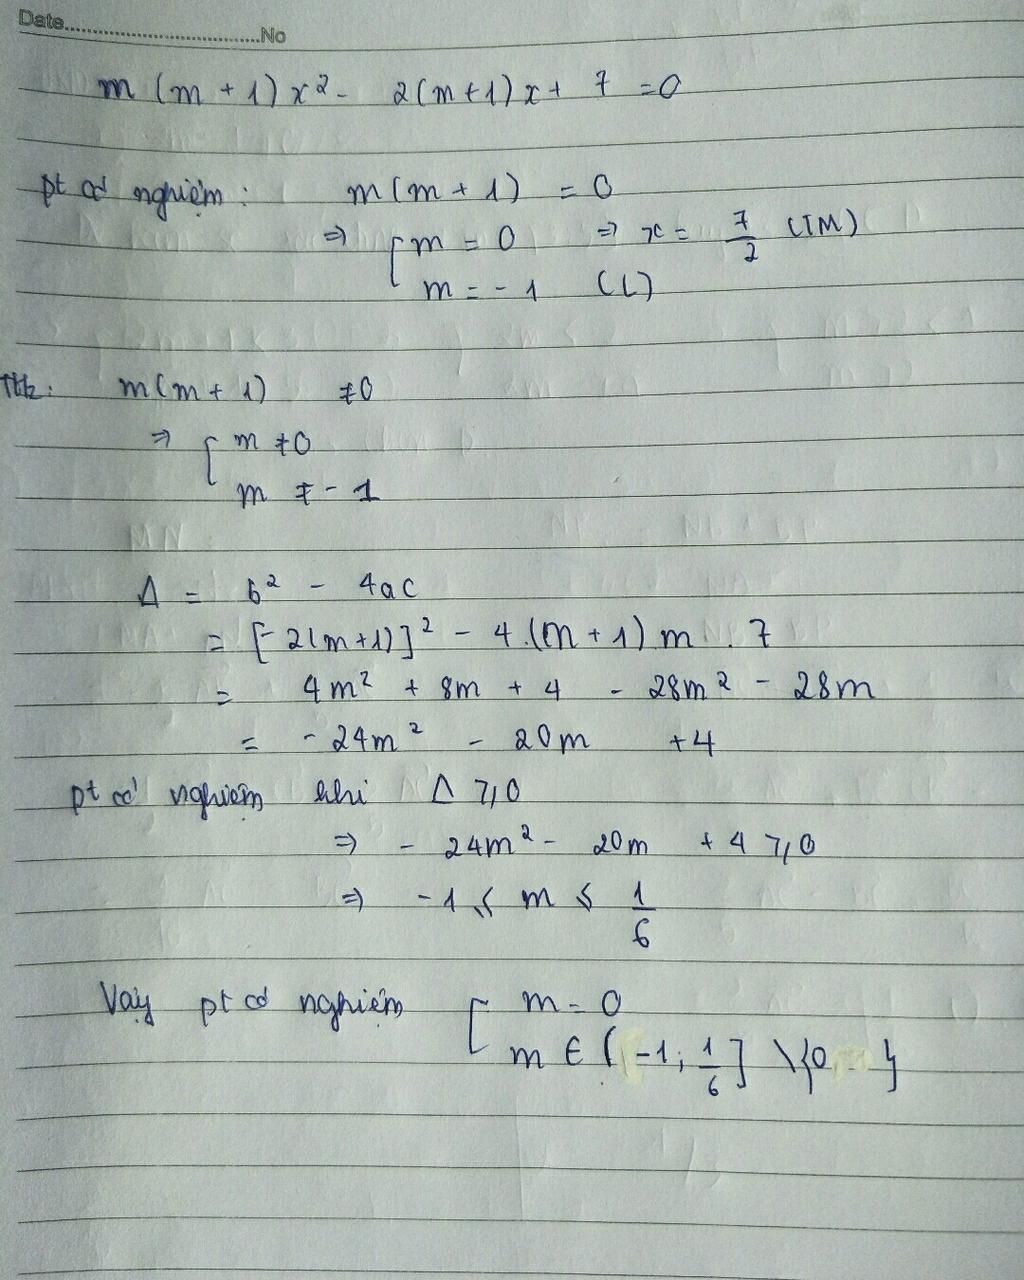 Date.....................................No
m (m + 1) x² - 2(m+1) x + 7 = 0
pt có nghiệm : m(m + 1) = 0
⇒ [ m = 0 ⇒ x = 7/2 (TM)
m = - 1 (L)
TH2: m(m + 1) ≠ 0
⇒ [ m ≠ 0
m ≠ - 1
Δ = b² - 4ac
= [- 2(m+1)]² - 4.(m + 1) m . 7
= 4m² + 8m + 4 - 28m² - 28m
= - 24m² - 20m + 4
pt có nghiệm khi Δ ≥ 0
⇒ - 24m² - 20m + 4 ≥ 0
⇒ - 1 ≤ m ≤ 1/6
Vậy pt có nghiệm [ m = 0
m ∈ (-1; 1/6] \{0 }